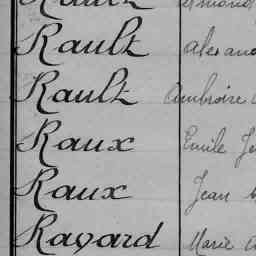 Rault Alexand
Rault Ambroise
Raux Emile Je
Raux Jean
Ravard Marie